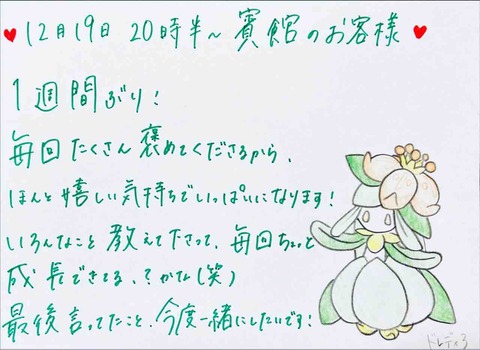 ♥12月19日 20時半〜賓館のお客様♥
1週間ぶり!
毎回たくさん褒めてくださるから、
ほんと嬉しい気持ちでいっぱいになります!
いろんなこと教えて下さって、毎回ちょっと
成長できてる、?かな(笑)
最後言ってたこと、今度一緒にしたいです!
ドレディア